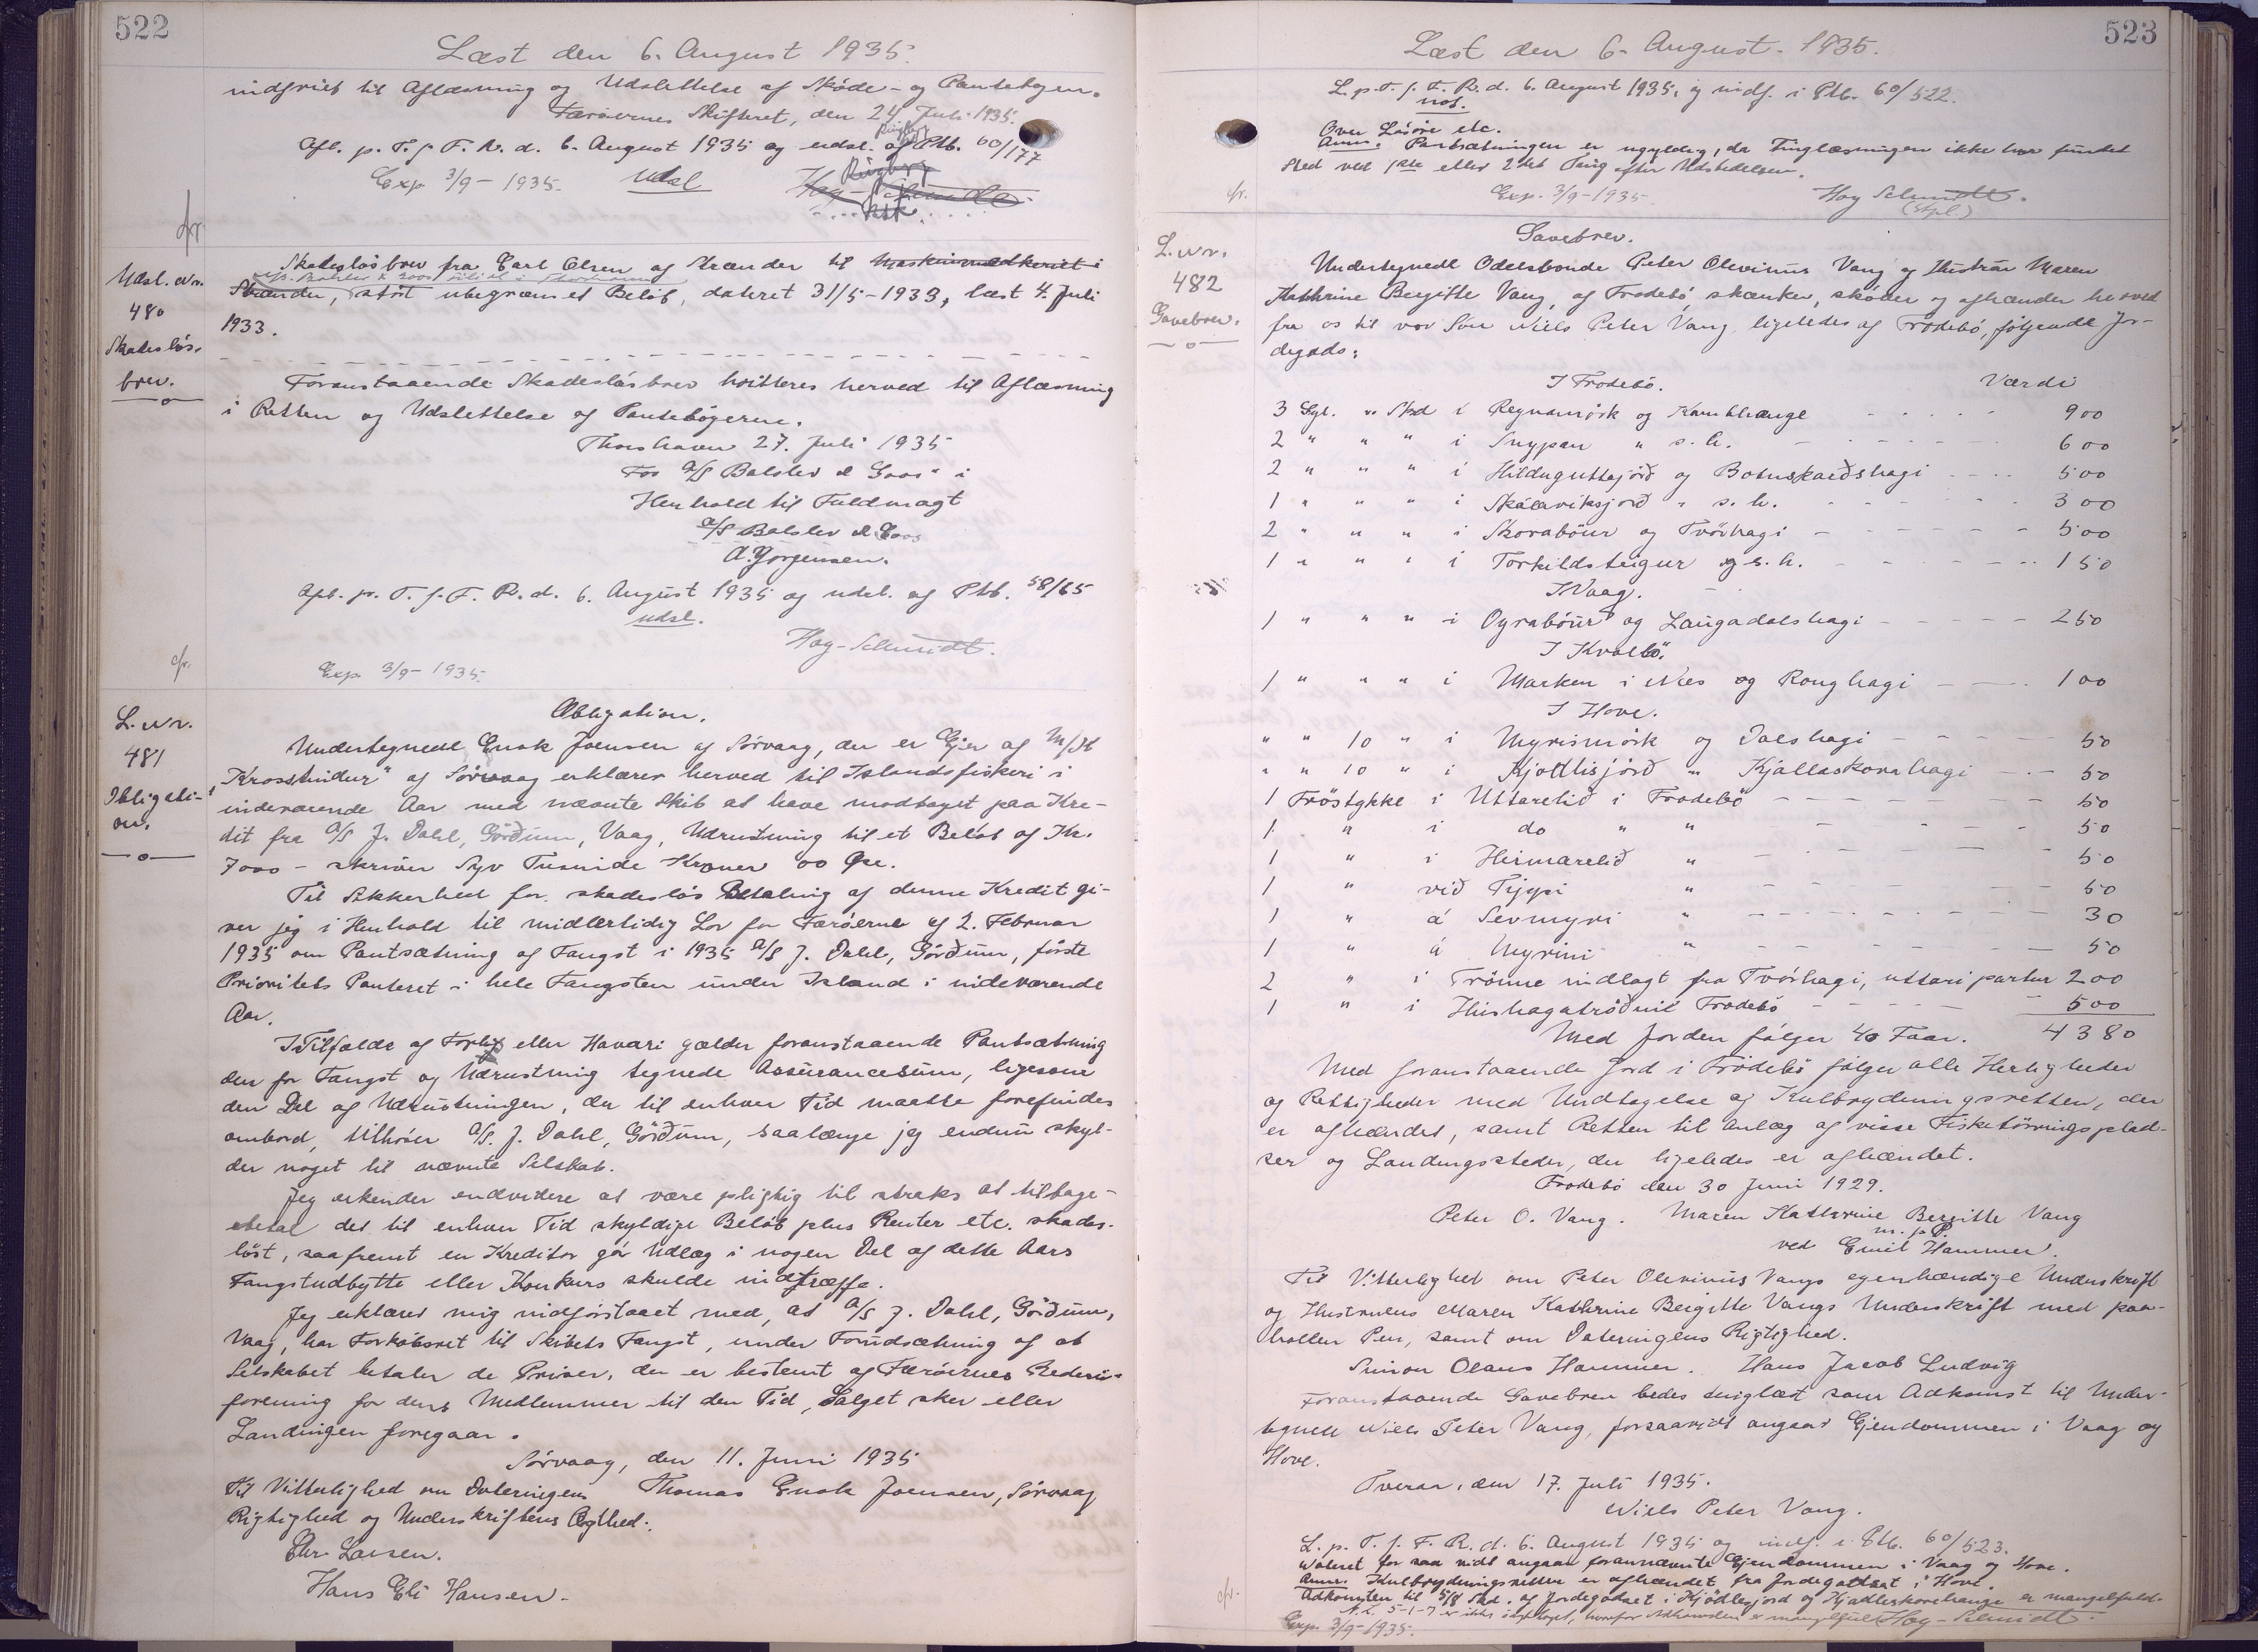 522
Læst den 6. August 1935.
indfriet til Aflæsning og Udslettelse af Skøde- og Pantebogen.
Færøernes Skifteret, den 24 Juli 1935.
Ringberg
Afl. p. T. f. F. R. d. 6. August 1935 og udsl. af Ptb. 60/177
Exp 3/9-1935. Udsl
Høg-Schmidt
cfr.
Udsl. Nr.
480
Skadesløs-
brev.
Skadesløsbrev fra Carl Olsen af Strænder til Maskinværkeriet i
Strænder, stort ubegrænset Beløb, dateret 31/5-1933, læst 4. Juli
1933.
Foranstaaende Skadesløsbrev kvitteres herved til Aflæsning
i Retten og Udslettelse af Pantebøgerne.
Thorshavn 27. Juli 1935
For A/S Balslev & Goos i
Henhold til Fuldmagt
A/S Balslev & Goos
A. Jørgensen.
Afl. p. T. f. F. R. d. 6. August 1935 og udsl. af Ptb. 58/65
udsl.
Høg-Schmidt.
cfr.
Exp. 3/9-1935.
L. Nr.
481
Obligati-
on.
Obligation.
Undertegnede Enok Joensen af Sørvaag, der er Ejer af M/Sk
"Krosstindur" af Sørvaag erklærer herved til Islandsfiskeri i
indeværende Aar med nævnte Skib at have modtaget paa Kre-
dit fra A/S J. Dahl, Görðum, Vaag, Udrustning til et Beløb af Kr.
7000 - skriver Syv Tusinde Kroner 00 Øre.
Til Sikkerhed for skadesløs Betaling af denne Kredit gi-
ver jeg i Henhold til midlertidig Lov for Færøerne af 2. Februar
1935 om Pantsætning af Fangst i 1935 A/S J. Dahl, Görðum, første
Prioritets Panteret i hele Fangsten under Island i indeværende
Aar.
I Tilfælde af Forlis eller Havari gælder foranstaaende Pantsætning
den for Fangst og Udrustning tegnede Assurancesum, ligesom
den Del af Udrustningen, der til enhver Tid maatte forefindes
ombord, tilhører A/S. J. Dahl, Görðum, saalænge jeg endnu skyl-
der noget til nævnte Selskab.
Jeg erkender endvidere at være pligtig til straks at tilbage-
betale det til enhver Tid skyldige Beløb plus Renter etc. skades-
løst, saafremt en Kreditor gør Udlæg i nogen Del af dette Aars
Fangstudbytte eller Konkurs skulde indtræffe.
Jeg erklærer mig indforstaaet med, at A/S J. Dahl, Görðum,
Vaag, har Forkøbsret til Skibets Fangst, under Forudsætning af at
Selskabet betaler de Priser, der er bestemt af Færøernes Rederi-
forening for dens Medlemmer til den Tid, Salget sker eller
Landingen foregaar.
Sørvaag, den 11. Juni 1935
Til Vitterlighed om Dateringens Thomas Enok Joensen, Sørvaag
Rigtighed og Underskriftens Ægthed:
Chr. Larsen.
Hans Eli Hansen.
523
Læst den 6. August. 1935.
L. p. T. f. F. R. d. 6. August 1935, og indf. i Ptb. 60/522.
not.
Over Løsøre etc.
Anm. Pantsætningen er ugyldig, da Tinglæsningen ikke har fundet
Sted ved 1ste eller 2det Ting efter Udstedelsen.
cfr.
Exp. 3/9-1935. Høg Schmidt.
(Stpl)
L. Nr.
482
Gavebrev.
Gavebrev.
Undertegnede Odelsbonde Peter Olevinus Vang og Hustru Maren
Kathrine Bergitte Vang, af Frodebø skænker, skøder og afhænder herved
fra os til vor Søn Niels Peter Vang, ligeledes af Frodebø, følgende Jor-
degods:
I Frodebø. Værdi
3 Gyl. " Skd i Regnamörk og Kambhauge 900
2 " " " i Snypan " s. h. 600
2 " " " i Hilduguttajörð og Botnskarðshagi 500
1 " " " i Skálavíksjorð " s. h. 300
2 " " " i Skorabøur og Tvörhagi 500
1 " " " i Torkildsteigur og s. h. 150
I Vaag.
1 " " " i Oyrabøur og Laugadalshagi 250
I Kvalbø.
1 " " " i Marken i Nes og Ronghagi 100
I Hove.
" " 10 " i Myrismörk og Dalshagi 50
" " 10 " i Kjødlisjörð " Kjallaskorahagi 50
1 Trøstykke i Uttarelið i Frodebø 50
1 " i do " " 50
1 " i Heimarelið " 50
1 " við Tjypi " 50
1 " á Sevmyri " 30
1 " á Myrini " 50
2 " i Trönne indlagt fra Tvörhagi, uttari partur 200
1 " i Hushagatröðni Frodebø 500
Med Jorden følger 40 Faar. 4380
Med foranstaaende Jord i Frodebø følger alle Herligheder
og Rettigheder med Undtagelse af Kulbrydningsretten, der
er afhændet, samt Retten til Anlæg af visse Fisketørringsplad-
ser og Landingssteder, der ligeledes er afhændet.
Frodebø den 30 Juni 1929.
Peter O. Vang. Maren Kathrine Bergitte Vang
m. p. P.
ved Emil Hammer.
Til Vitterlighed om Peter Olevinus Vangs egenhændige Underskrift
og Hustruens Maren Kathrine Bergitte Vangs Underskrift med paa-
holden Pen, samt om Dateringens Rigtighed.
Simon Olaus Hammer. Hans Jacob Ludvig
Foranstaaende Gavebrev bedes tinglæst som Adkomst til Under-
tegnede Niels Peter Vang, forsaavidt angaar Ejendommen i Vaag og
Hove.
Tveraa, den 17. Juli 1935.
Niels Peter Vang.
L. p. T. f. F. R. d. 6. August 1935 og indf. i Ptb. 60/523.
Noteret for saa vidt angaar forannævnte Ejendommen i Vaag og Hove.
Anm. Kulbrydningsretten er afhændet fra Jordegodset i Hove.
Adkomsten til 5/8 Skd. af Jordegodset i Kjødlesjord og Kjadleskorehauge er mangelfuld.
cfr.
Exp. 3/9-1935. Høg-Schmidt.